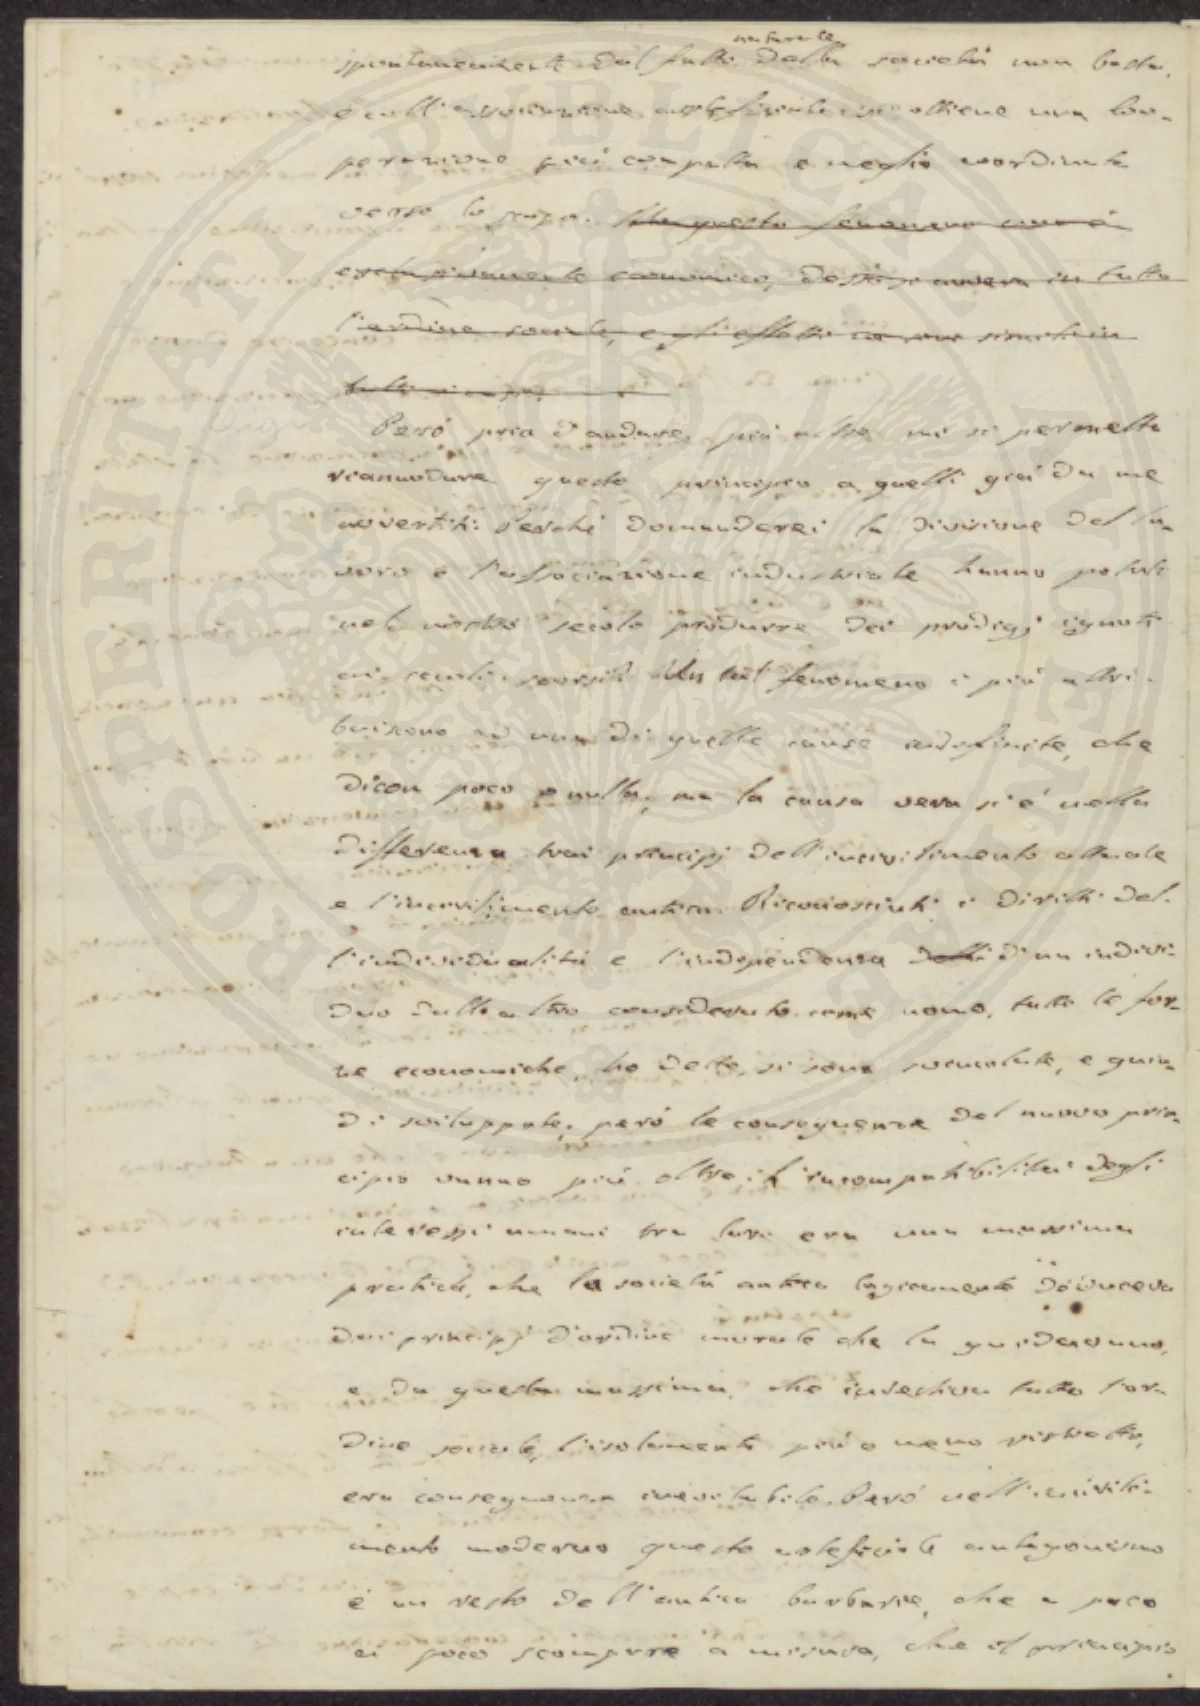 naturale
spontaneamente dal fatto della società non basta,
e coll'associazione artificiale si ottiene una coo-
perazione più compatta e meglio coordinata
verso lo scopo. Ma questo fenomeno non è
esclusivamente economico, desso si avvera in tutto
l'ordine sociale, e gli effetti ne sono simili in
tutti i
Però pria d'andare più oltre mi si permetta
riannodare questo principio a quelli già da me
avvertiti: Perché domanderei la divisione del la-
voro e l'associazione industriale hanno potuto
nel nostro secolo produrre dei prodigj ignoti
ai secoli scorsi? Un tal fenomeno i più attri-
buiscono ad una di quelle cause indefinite, che
dicon poco o nulla; ma la causa vera si è nella
differenza trai principj dell'incivilimento attuale
e l'incivilimento antico. Riconosciuti i diritti del-
l'individualità e l'indipendenza d'un indivi-
duo dall'altro considerato come uomo, tutte le for-
ze economiche, ho detto, si sono svincolate, e quin-
di sviluppate; però le conseguenze del nuovo prin-
cipio vanno più oltre: L'incompatibilità degli
interessi umani tra loro era una massima
pratica, che la società antica logicamente deduceva
dai principj d'ordine morale che la guidavano,
e da questa massima, che investiva tutto l'or-
dine sociale, l'isolamento più o meno ristretto,
era conseguenza inevitabile. Però nell'incivili-
mento moderno questo artificiale antagonismo
è un resto dell'antica barbarie, che a poco
ai poco scompare a misura, che il principio